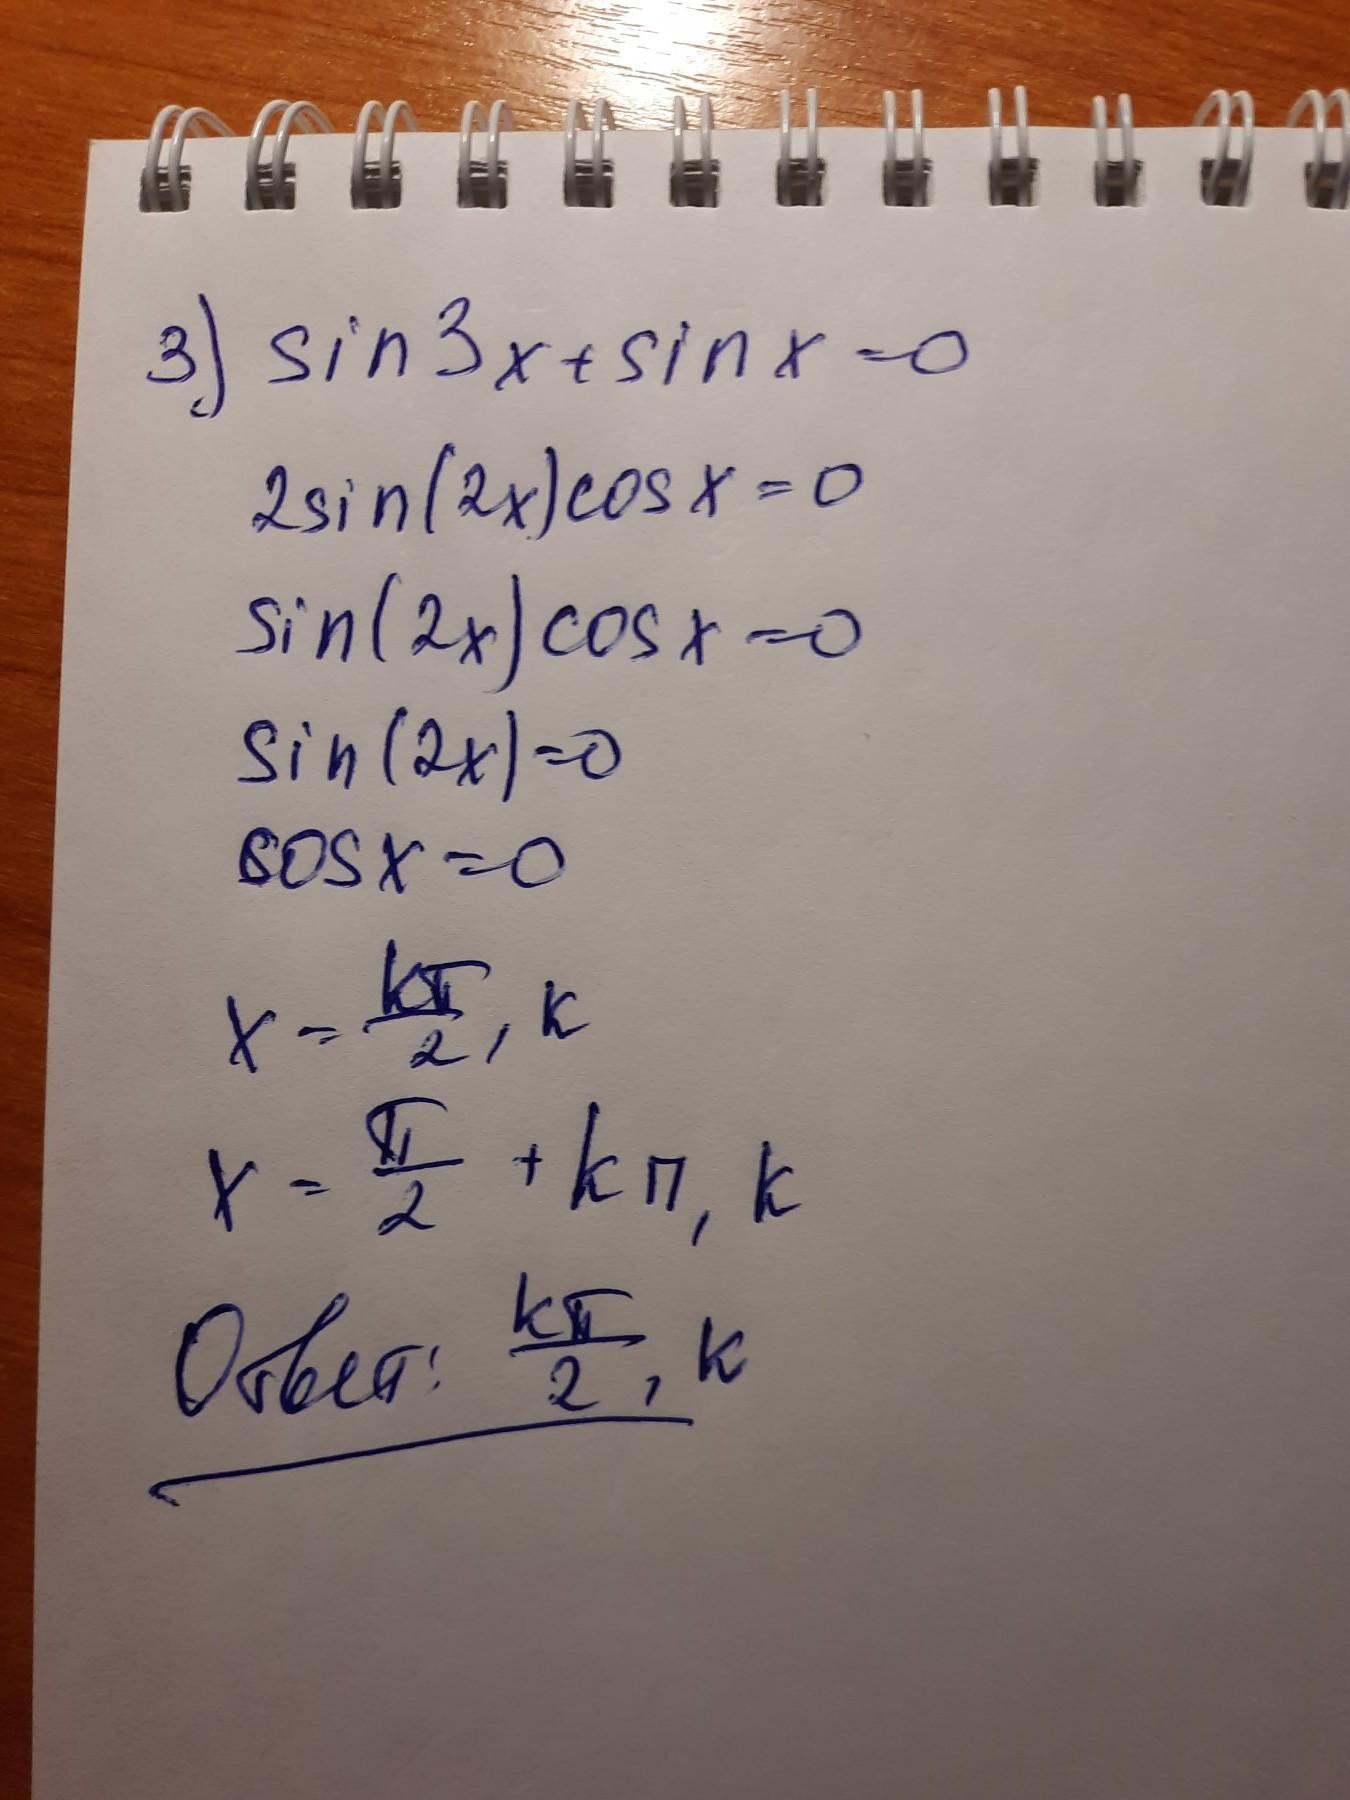 3) sin3x+sinx=0
2sin(2x)cosx=0
sin(2x)cosx=0
sin(2x)=0
cosx=0
x=kπ/2, k
x=π/2+kπ, k
Ответ: kπ/2, k